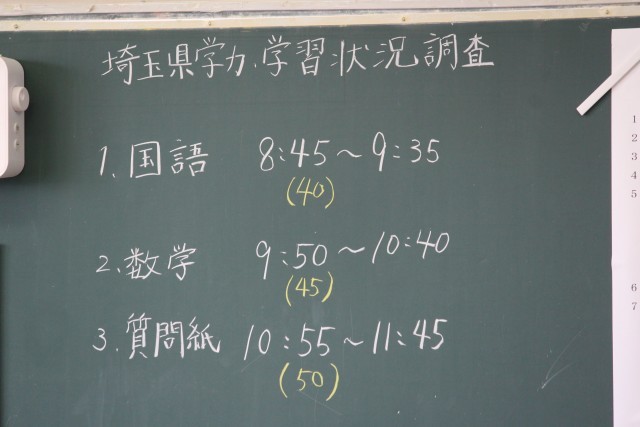 埼玉県学力・学習状況調査
1. 国語 8:45～9:35
(40)
2. 数学 9:50～10:40
(45)
3. 質問紙 10:55～11:45
(50)
1
2
3
4
5
6
7